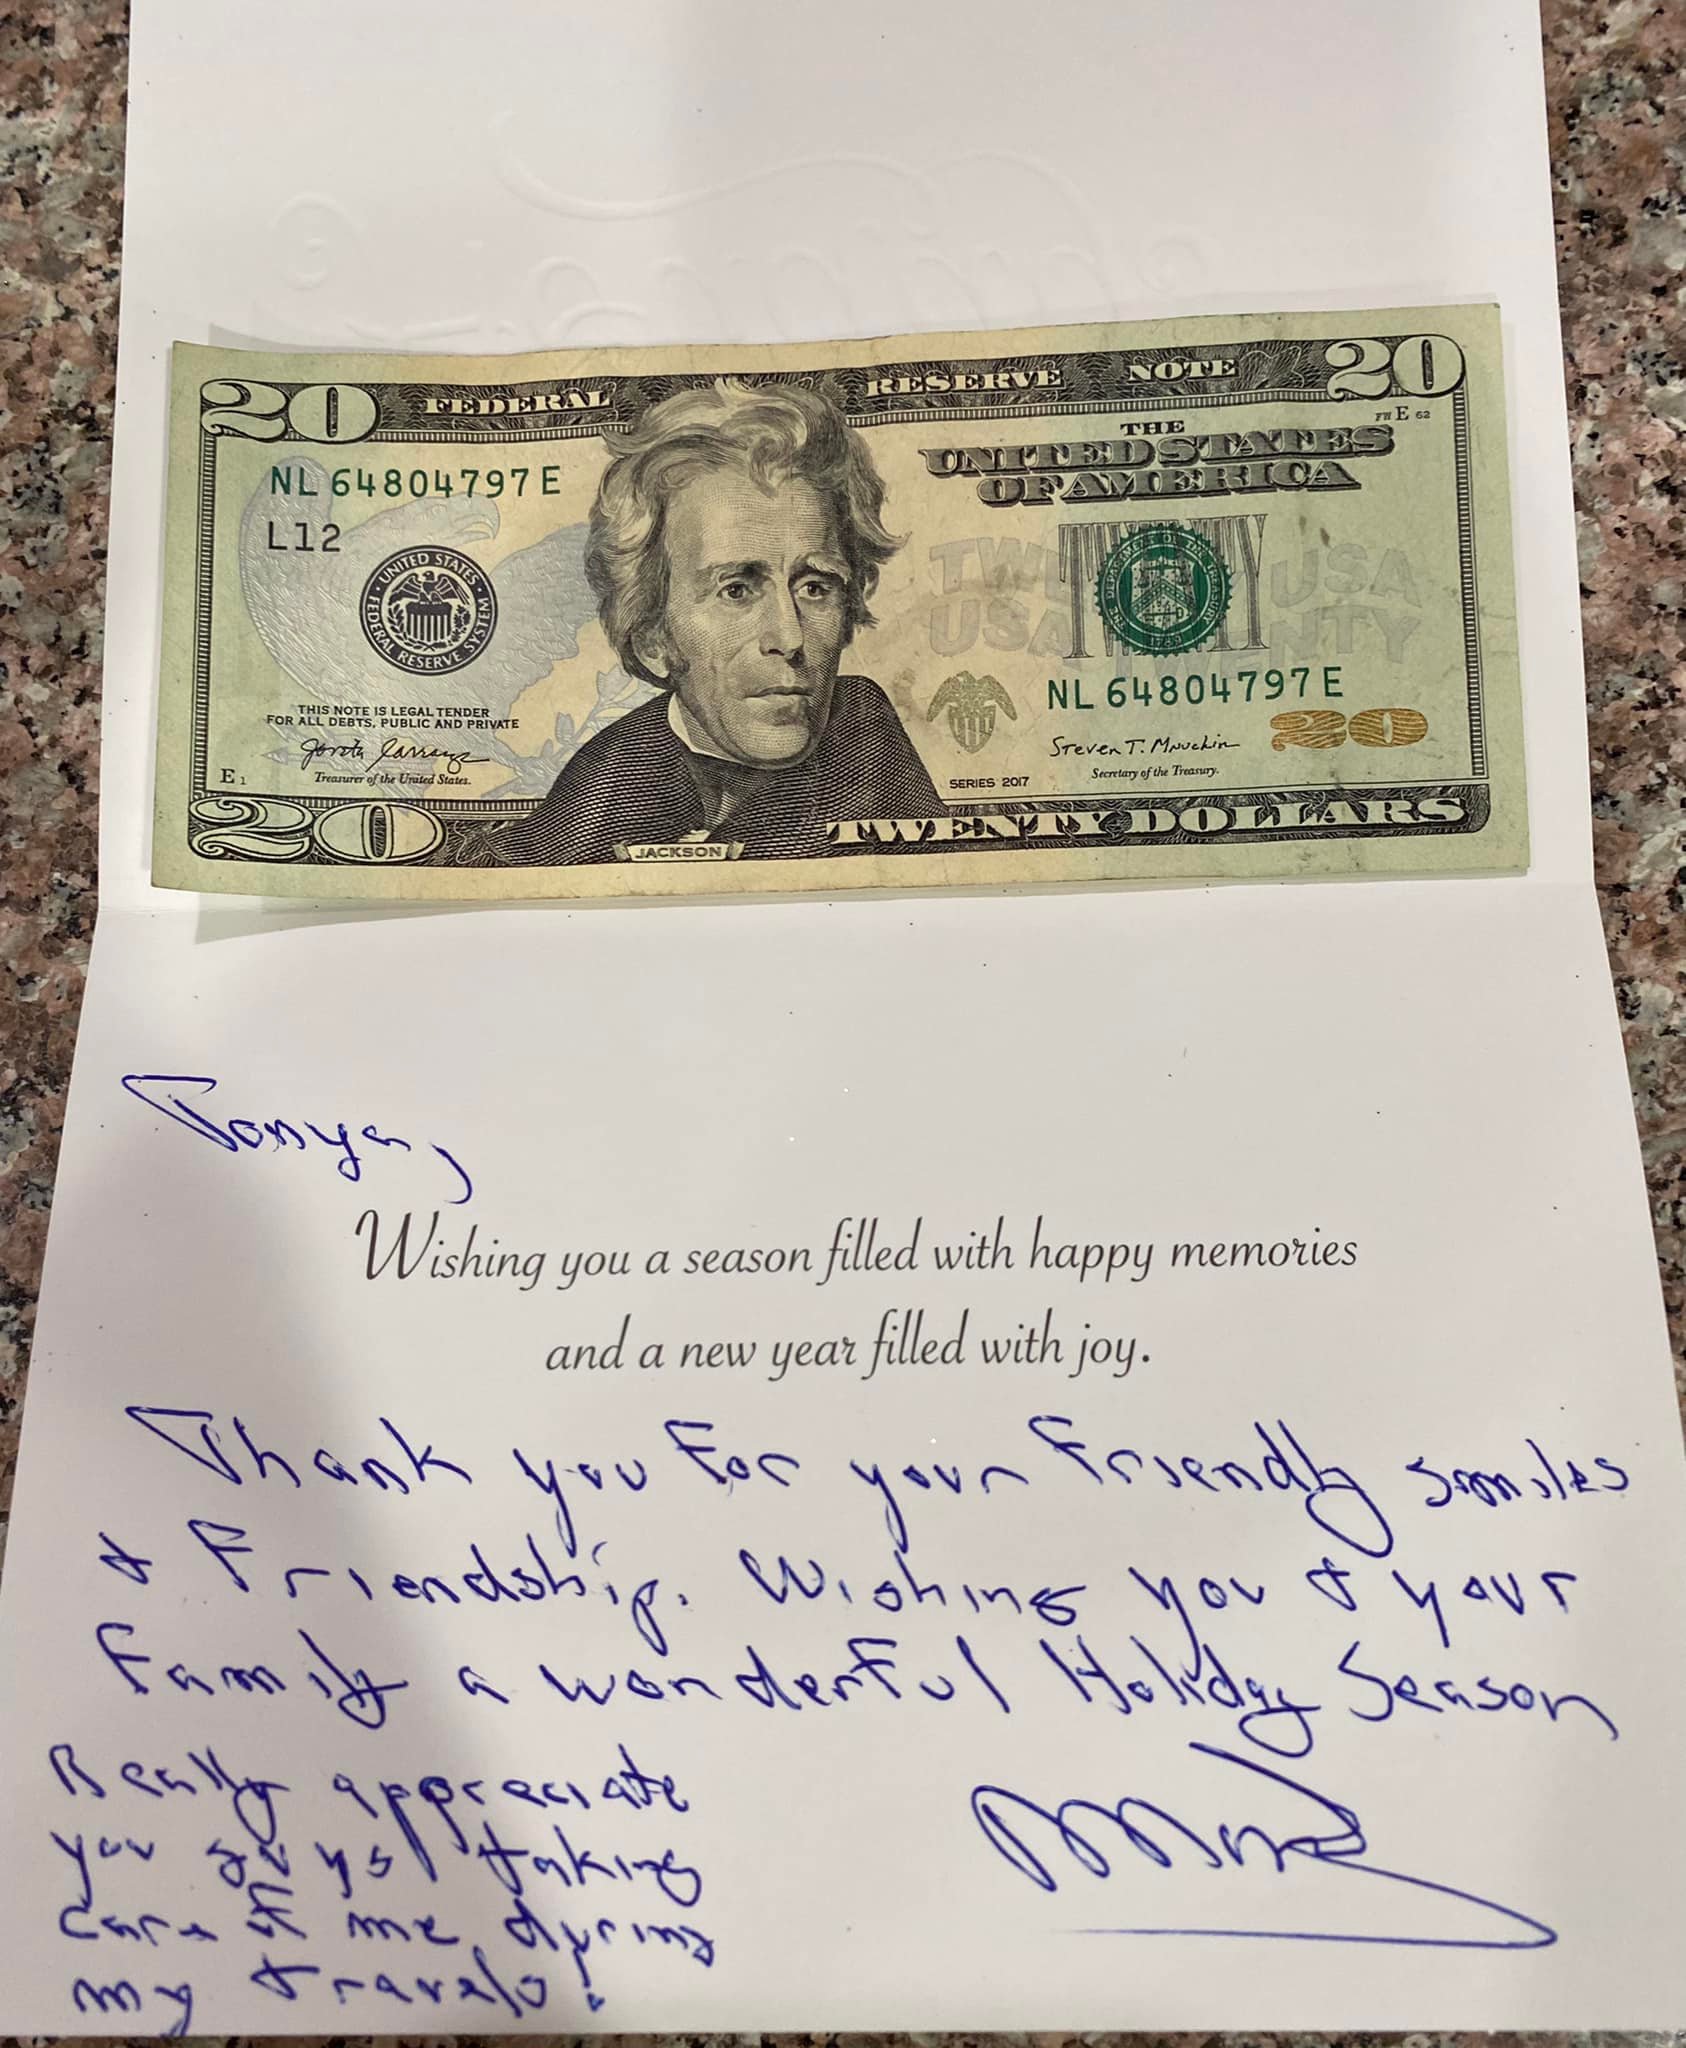 20 FEDERAL RESERVE NOTE 20
FW E 62
THE
UNITED STATES
OF AMERICA
NL 64804797 E
L12
UNITED STATES FEDERAL RESERVE SYSTEM
USA
USA
TWENTY
NL 64804797 E
THIS NOTE IS LEGAL TENDER
FOR ALL DEBTS, PUBLIC AND PRIVATE
Treasurer of the United States.
E 1
SERIES 2017
Steven T. Mnuchin
Secretary of the Treasury.
20
20 JACKSON TWENTY DOLLARS
Tonya,
Wishing you a season filled with happy memories
and a new year filled with joy.
Thank you for your friendly smiles
& Friendship. Wishing you & your
Family a wonderful Holiday Season
Really appreciate
you guys taking
care of me during
my travels!